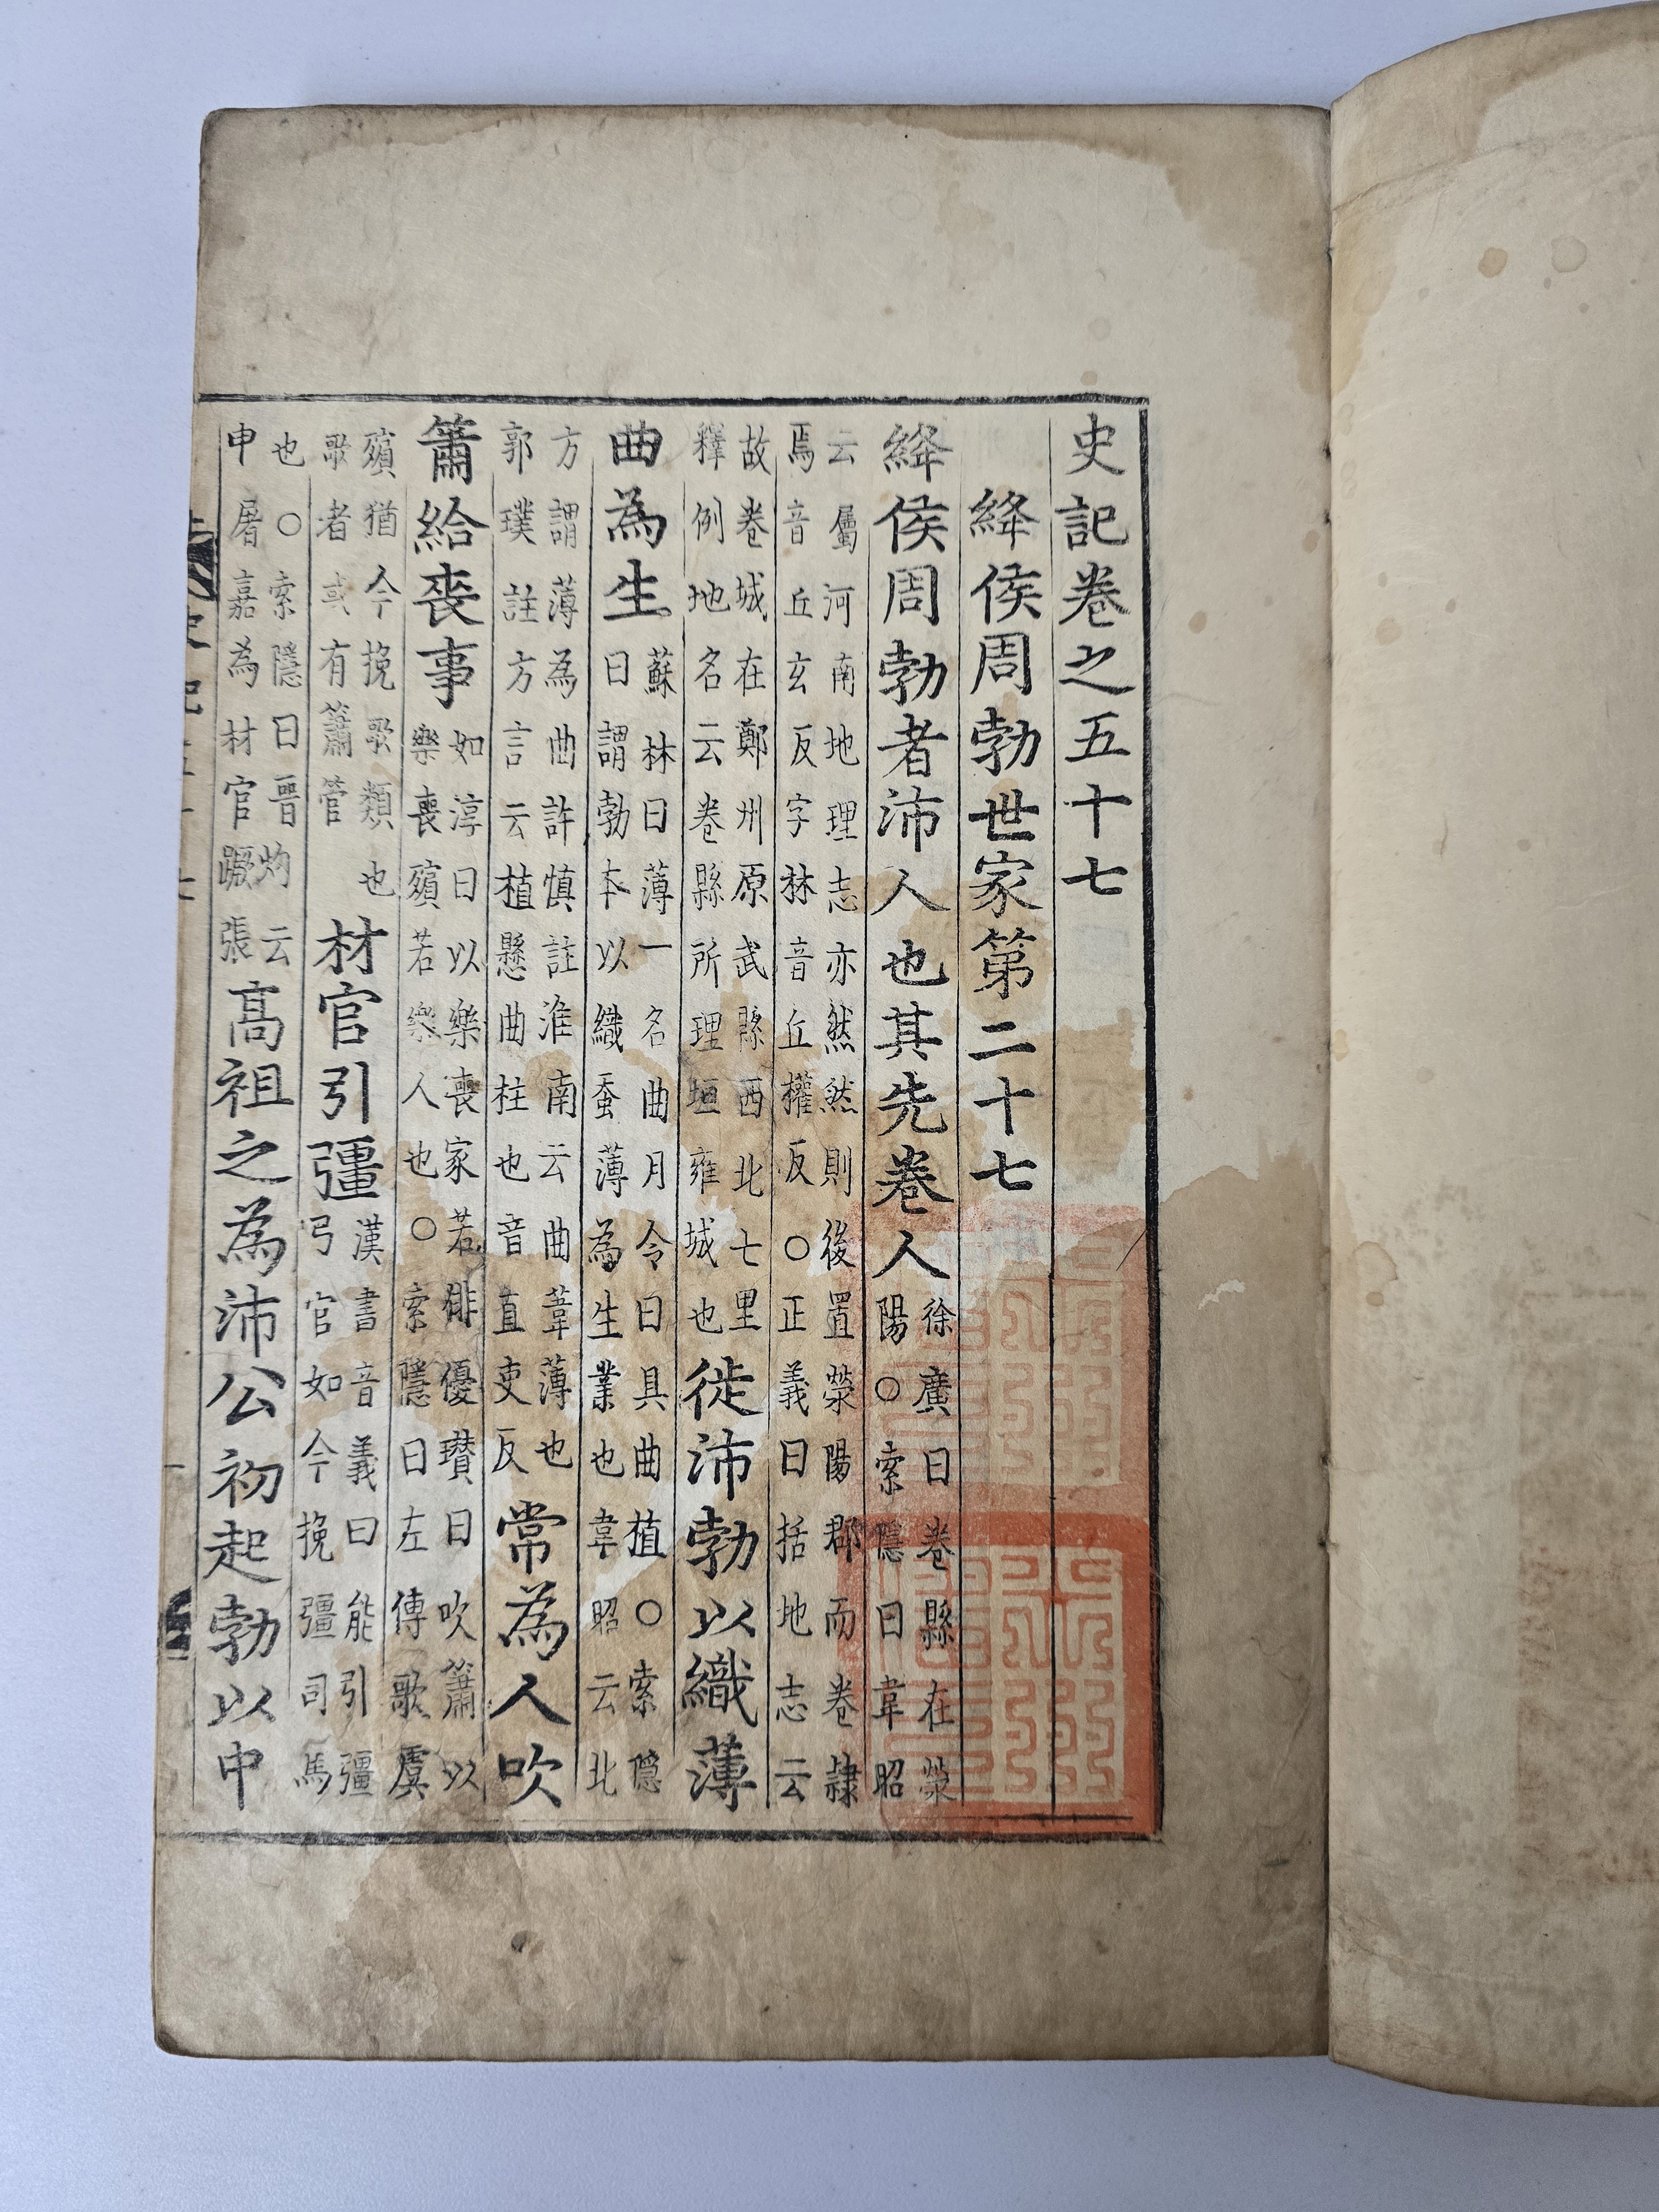 史記卷之五十七
絳侯周勃世家第二十七
絳侯周勃者沛人也其先卷人徐廣曰卷縣在滎陽○索隱曰韋昭
云屬河南地理志亦然然則後置滎陽郡而卷隷焉音丘玄反字林音丘權反○正義曰括地志云
故卷城在鄭州原武縣西北七里釋例地名云卷縣所理垣雍城也徙沛勃以織薄
曲為生蘇林曰薄一名曲月令曰具曲植○索隱曰謂勃本以織蚕薄為生業也韋昭云北
方謂薄為曲許慎註淮南云曲葦薄也郭璞註方言云植懸曲柱也音直吏反常為人吹
簫給喪事如淳曰以樂喪家若俳優瓚曰吹簫以樂喪殯若樂人也○索隱曰左傳歌虞
殯猶今挽歌類也歌者或有簫管材官引彊漢書音義曰能引彊弓官如今挽彊司馬
也○索隱曰晋灼云申屠嘉為材官蹶張高祖之為沛公初起勃以中